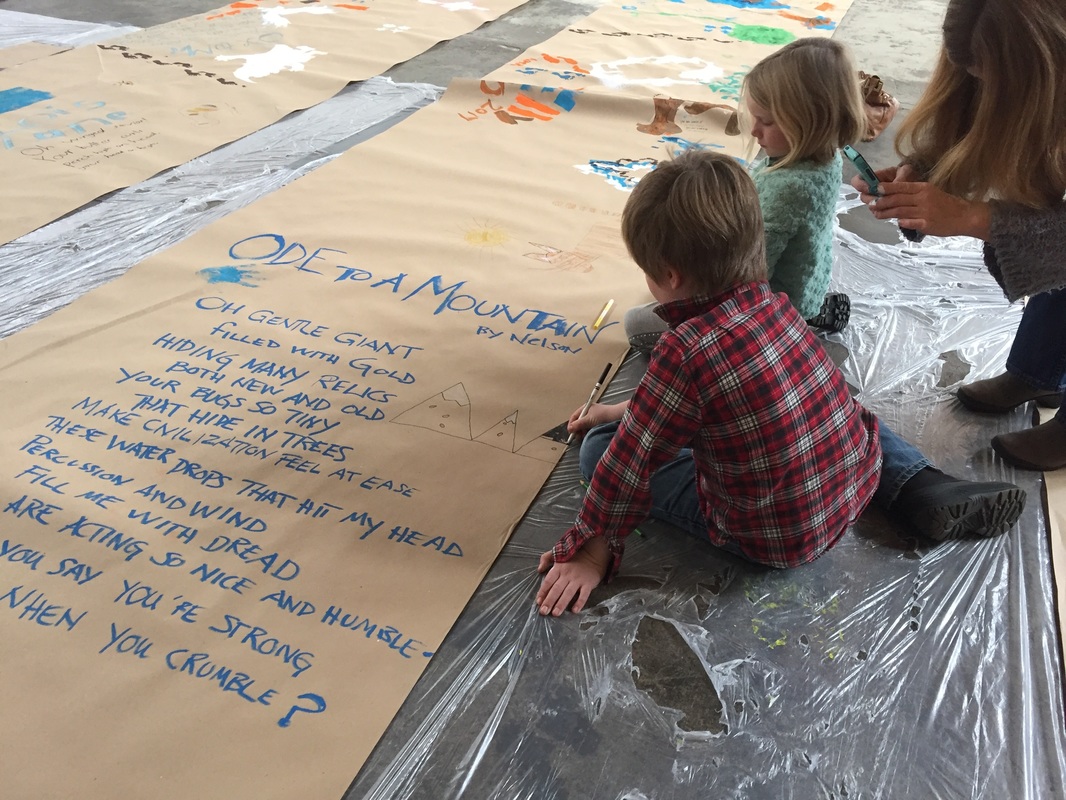 2017
ODE TO A MOUNTAIN
BY NELSON
OH GENTLE GIANT
FILLED WITH GOLD
HIDING MANY RELICS
BOTH NEW AND OLD
YOUR BUGS SO TINY
THAT HIDE IN TREES
MAKE CIVILIZATION FEEL AT EASE
THESE WATER DROPS THAT HIT MY HEAD
PERCUSSION AND WIND
FILL ME WITH DREAD
ARE ACTING SO NICE AND HUMBLE.
YOU SAY YOU'RE STRONG
WHEN YOU CRUMBLE?